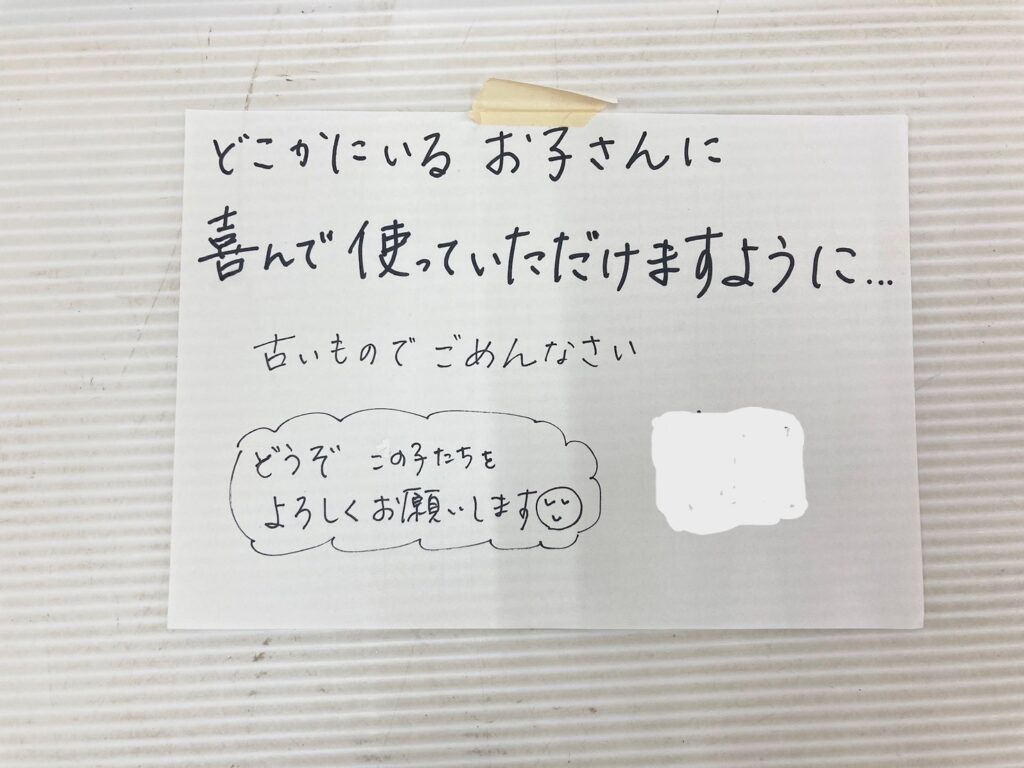 どこかにいる お子さんに
喜んで使っていただけますように...
古いもので ごめんなさい
どうぞ この子たちを
よろしくお願いします